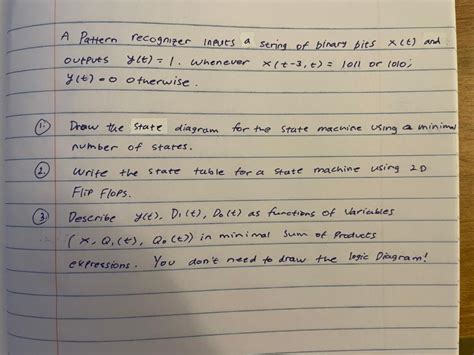 A Pattern recognizer inputs a string of binary bits x(t) and
outputs y(t) = 1. whenever x(t-3,t) = 1011 or 1010;
y(t) = 0 otherwise.
1. Draw the state diagram for the state machine using a minimal
number of states.
2. Write the state table for a state machine using 2D
Flip Flops.
3. Describe y(t), D₁(t), D₀(t) as functions of variables
(x, Q₁(t), Q₀(t)) in minimal sum of products
expressions. You don't need to draw the logic Diagram!